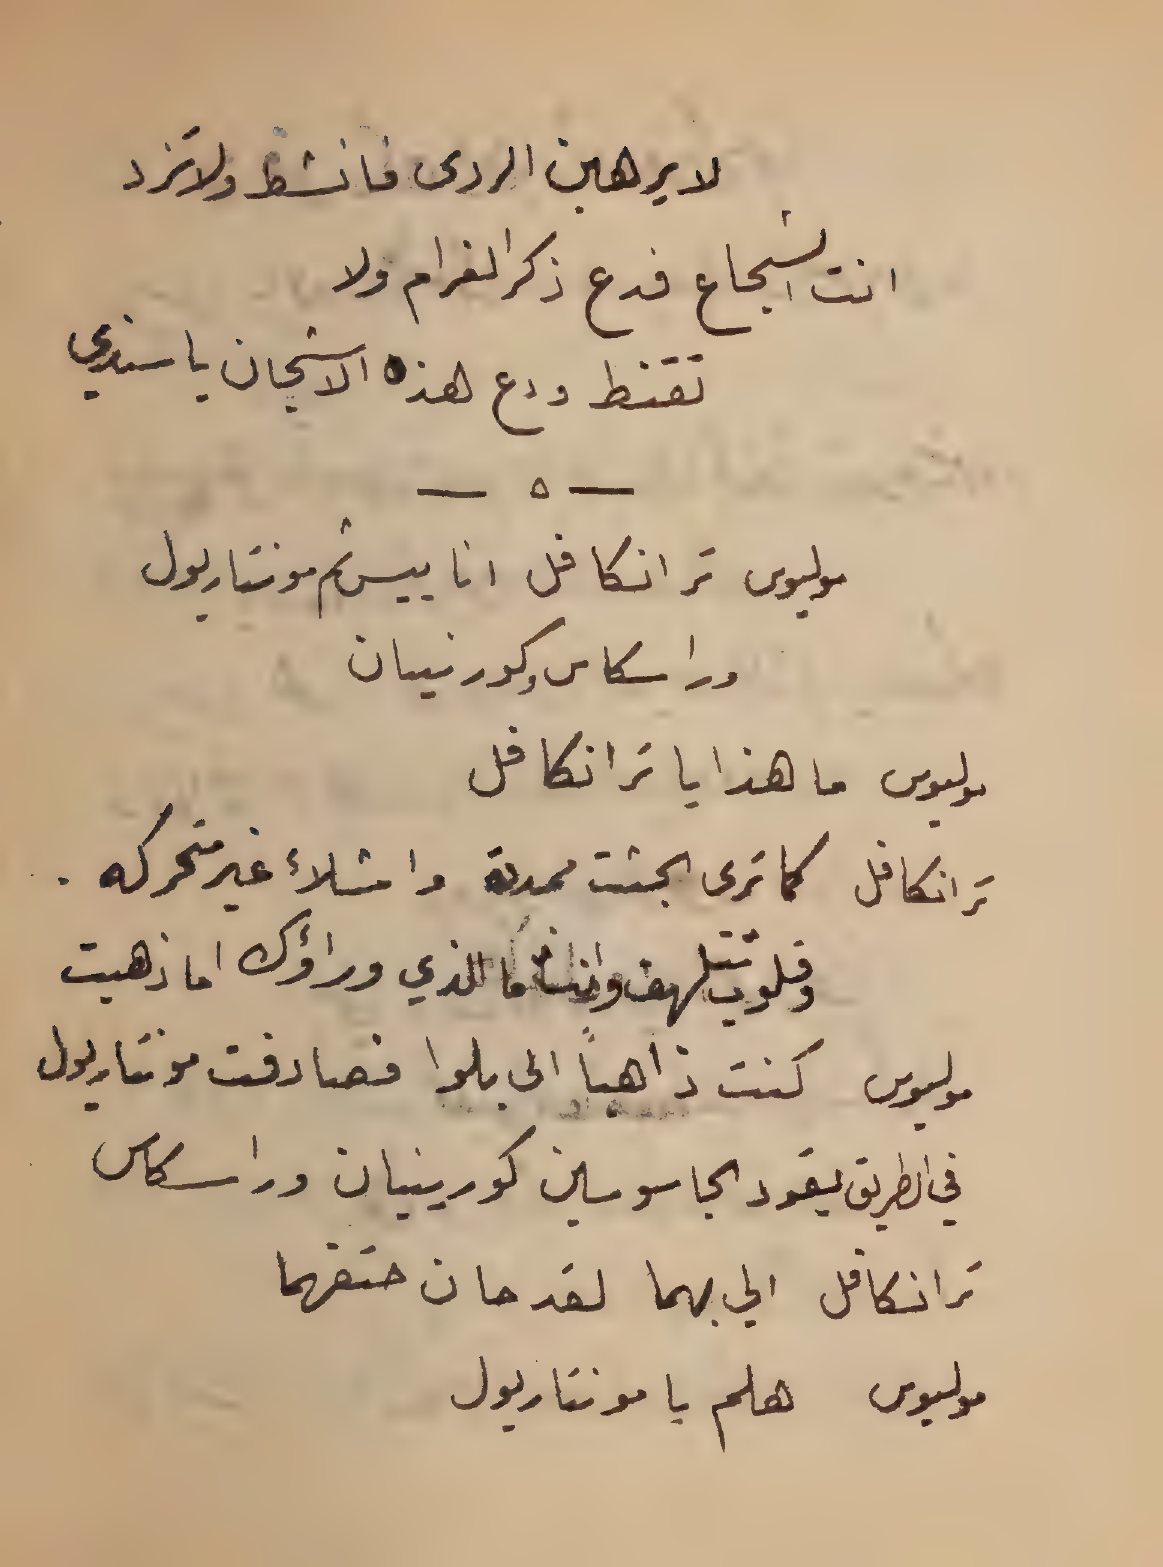 لا يرهبن الردى فانشط ولا تزد
انت الشجاع فدع ذكر الغرام ولا
تقنط ودع هذه الاشجان يا سندي
— ٥ —
موليوس ترانكافل انا بيس ثم مونتاريول
وراسكاس وكورنيبان
موليوس ما هذا يا ترانكافل
ترانكافل كما ترى الجثث ممددة واشلاء غير متحركه .
وقلوب تتلهف وانت ما الذي وراؤك اما ذهبت
موليوس كنت ذاهباً الى بلوا فصادفت مونتاريول
في الطريق يقود الجاسوسين كورينيان وراسكاس
ترانكافل الي بهما لقد حان حتفهما
موليوس هلم يا مونتاريول